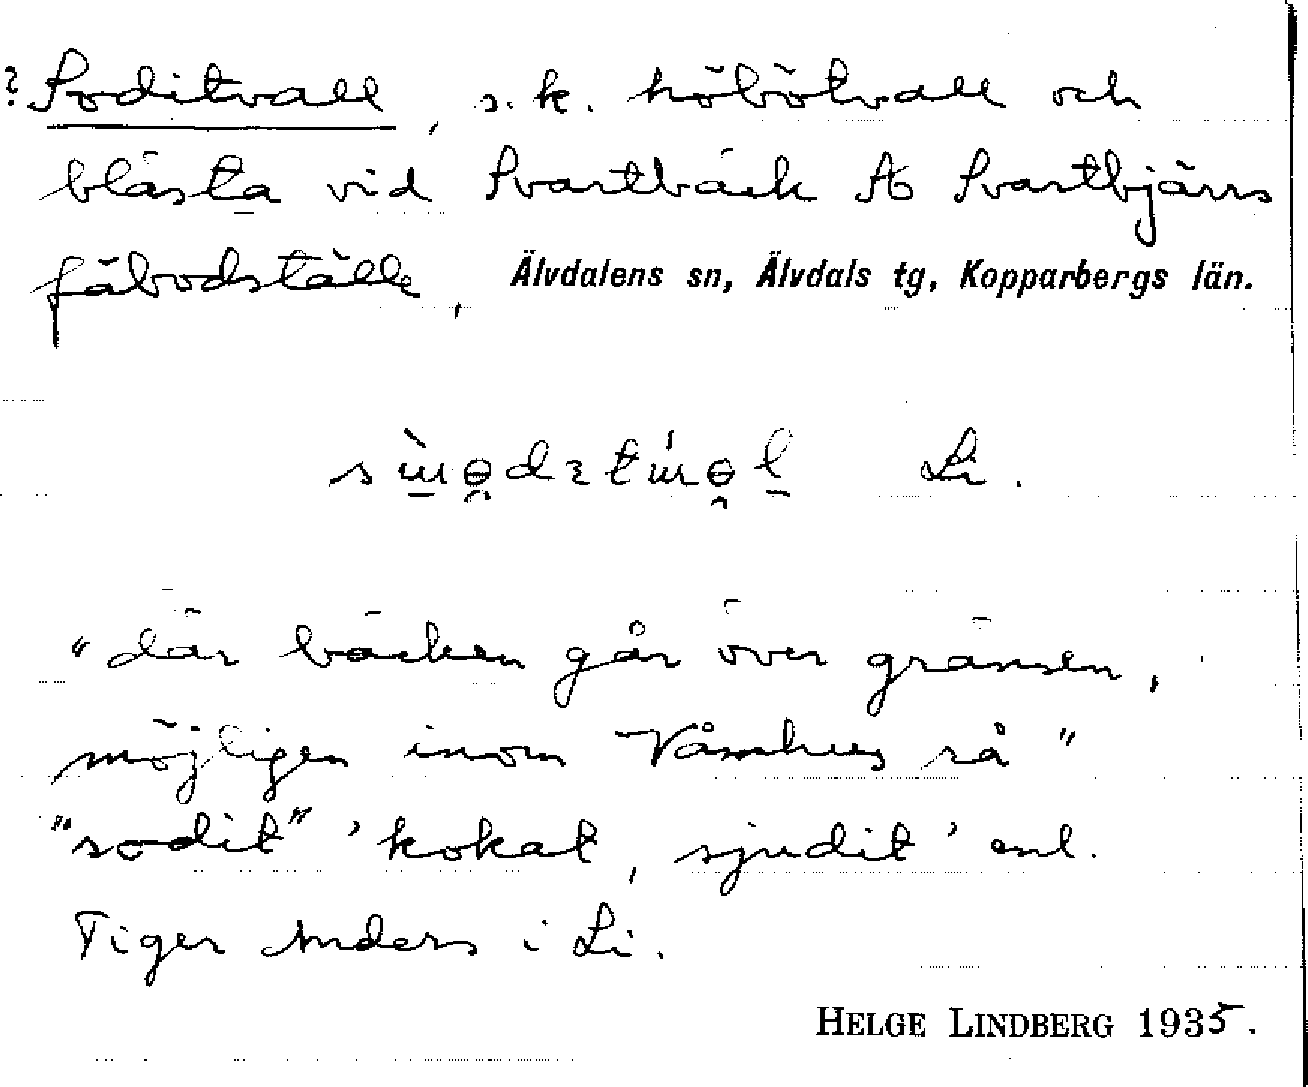 ? Soditvall, s.k. höbötvall och
blästa vid Svartbäck Ö Svartbjärns
fäbodställe, Älvdalens sn, Älvdals tg, Kopparbergs län.
Li.
"där bäcken går över gränsen,
möjligen inom Våmhus rå"
"sodit" 'kokat, sjudit' enl.
Tiger Anders i Li.
HELGE LINDBERG 1935.